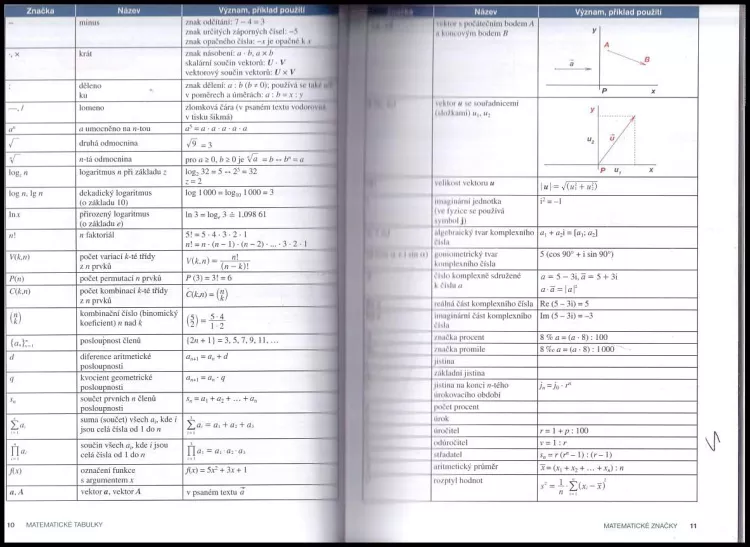 Značka Název Význam, příklad použití
– minus znak odčítání: 7 – 4 = 3
znak určitých záporných čísel: –5
znak opačného čísla: –x je opačné k x
·, × krát znak násobení: a · b, a × b
skalární součin vektorů: U · V
vektorový součin vektorů: U × V
: děleno znak dělení: a : b (b ≠ 0); používá se také
ku v poměrech a úměrách: a : b = x : y
—, / lomeno zlomková čára (v psaném textu vodorovná,
v tisku šikmá)
aⁿ a umocněno na n-tou a⁵ = a · a · a · a · a
√ druhá odmocnina √9 = 3
ⁿ√ n-tá odmocnina pro a ≥ 0, b ≥ 0 je ⁿ√a = b ↔ bⁿ = a
log_z logaritmus n při základu z log₂ 32 = 5 ↔ 2⁵ = 32
z = 2
log n, lg n dekadický logaritmus log 1000 = log₁₀ 1000 = 3
(o základu 10)
ln x přirozený logaritmus ln 3 = logₑ 3 ≐ 1,098 61
(o základu e)
n! n faktoriál 5! = 5 · 4 · 3 · 2 · 1
n! = n · (n – 1) · (n – 2) · ... · 3 · 2 · 1
V(k,n) počet variací k-té třídy V(k,n) = n! / (n – k)!
z n prvků
P(n) počet permutací n prvků P (3) = 3! = 6
C(k,n) počet kombinací k-té třídy C(k,n) = (n k)
z n prvků
(n k) kombinační číslo (binomický (5 2) = 5 · 4 / 1 · 2
koeficient) n nad k
posloupnost členů {2n + 1} = 3, 5, 7, 9, 11, …
d diference aritmetické aₙ₊₁ = aₙ + d
posloupnosti
q kvocient geometrické aₙ₊₁ = aₙ · q
posloupnosti
sₙ součet prvních n členů sₙ = a₁ + a₂ + … + aₙ
posloupnosti
∑aᵢ suma (součet) všech aᵢ, kde i ∑aᵢ = a₁ + a₂ + a₃
jsou celá čísla od 1 do n
∏aᵢ součin všech aᵢ, kde i jsou ∏aᵢ = a₁ · a₂ · a₃
celá čísla od 1 do n
f(x) označení funkce f(x) = 5x² + 3x + 1
s argumentem x
a, A vektor a, vektor A v psaném textu a⃗
10 MATEMATICKÉ TABULKY
Název Význam, příklad použití
vektor s počátečním bodem A
a koncovým bodem B
y
A
B
a⃗
P x
vektor u se souřadnicemi
(složkami) u₁, u₂
y
u₂ u⃗
P u₁ x
velikost vektoru u |u| = √(u₁² + u₂²)
imaginární jednotka i² = –1
(ve fyzice se používá
symbol j)
algebraický tvar komplexního a₁ + a₂i = [a₁; a₂]
čísla
goniometrický tvar 5 (cos 90° + i sin 90°)
komplexního čísla
číslo komplexně sdružené a = 5 – 3i, a̅ = 5 + 3i
k číslu a a · a̅ = |a|²
reálná část komplexního čísla Re (5 – 3i) = 5
imaginární část komplexního Im (5 – 3i) = –3
čísla
značka procent 8 % a = (a · 8) : 100
značka promile 8 ‰ a = (a · 8) : 1 000
jistina
základní jistina
jistina na konci n-tého jₙ = j₀ · rⁿ
úrokovacího období
počet procent
úrok
úročitel r = 1 + p : 100
odúročitel v = 1 : r
střadatel sₙ = r (rⁿ – 1) : (r – 1)
aritmetický průměr x̅ = (x₁ + x₂ + … + xₙ) : n
rozptyl hodnot s² = 1/n · ∑(xᵢ – x̅)²
MATEMATICKÉ ZNAČKY 11